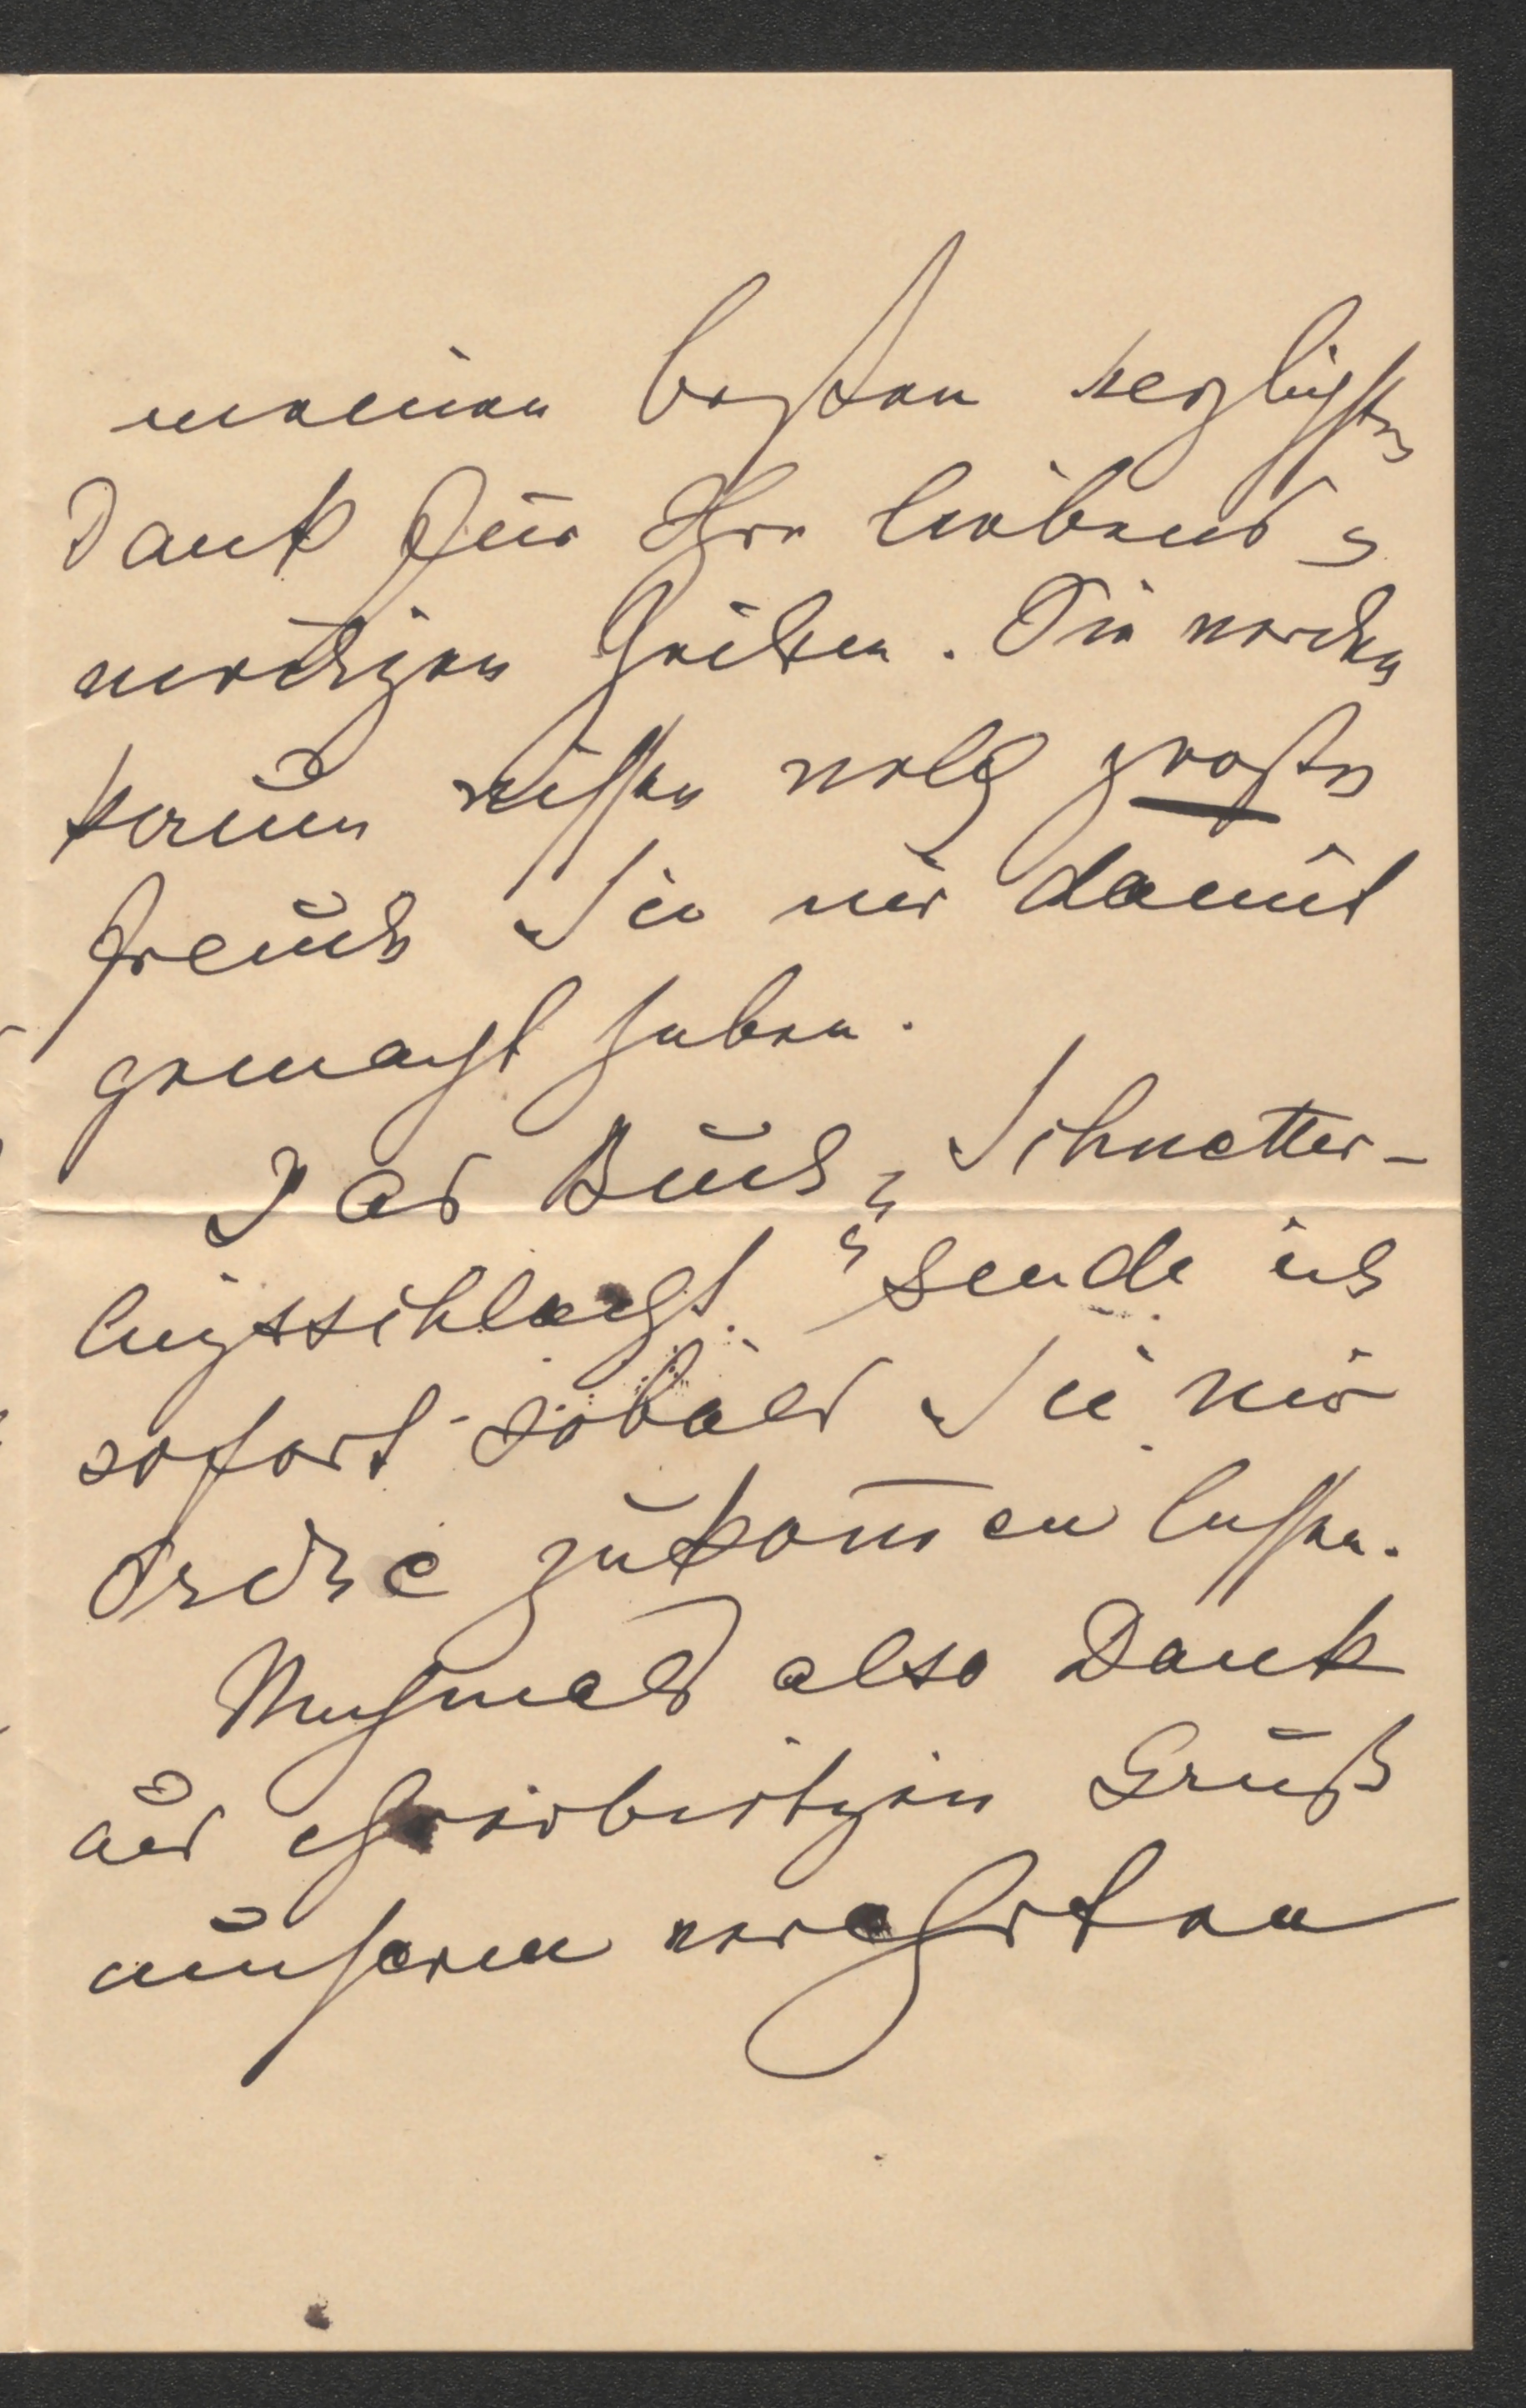 meinen besten herzlichsten
Dank für Ihre liebens-
würdigen Zeilen. Sie werden
kaum wissen welch große
Freude Sie mir damit
gemacht haben.
Das Buch „Schmetter-
lingsschlacht" sende ich
sofort sobald Sie mir
Ordre zukom̄en lassen.
Nochmals also Dank
und ehrerbietigen Gruß
unserem verehrten